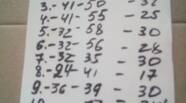 3.-41-50 - 32
4.-41-55 - 25
5.-32-58 - 30
6.-32-56 - 28
7.-32 35 - 30
8.-24 41 - 17
9.-36-39 - 30
10